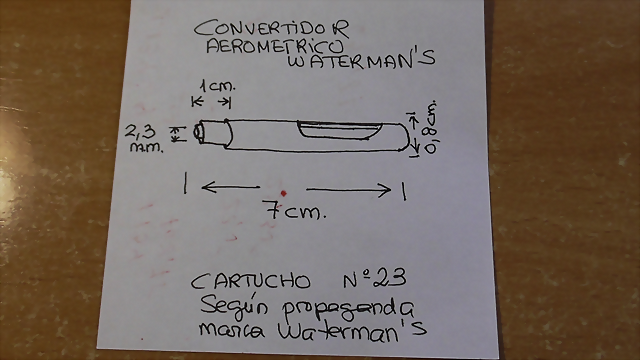 CONVERTIDOR
AEROMETRICO
WATERMAN'S
1cm.
2,3
m.m.
0,8cm.
7cm.
CARTUCHO Nº23
Según propaganda
marca Waterman's